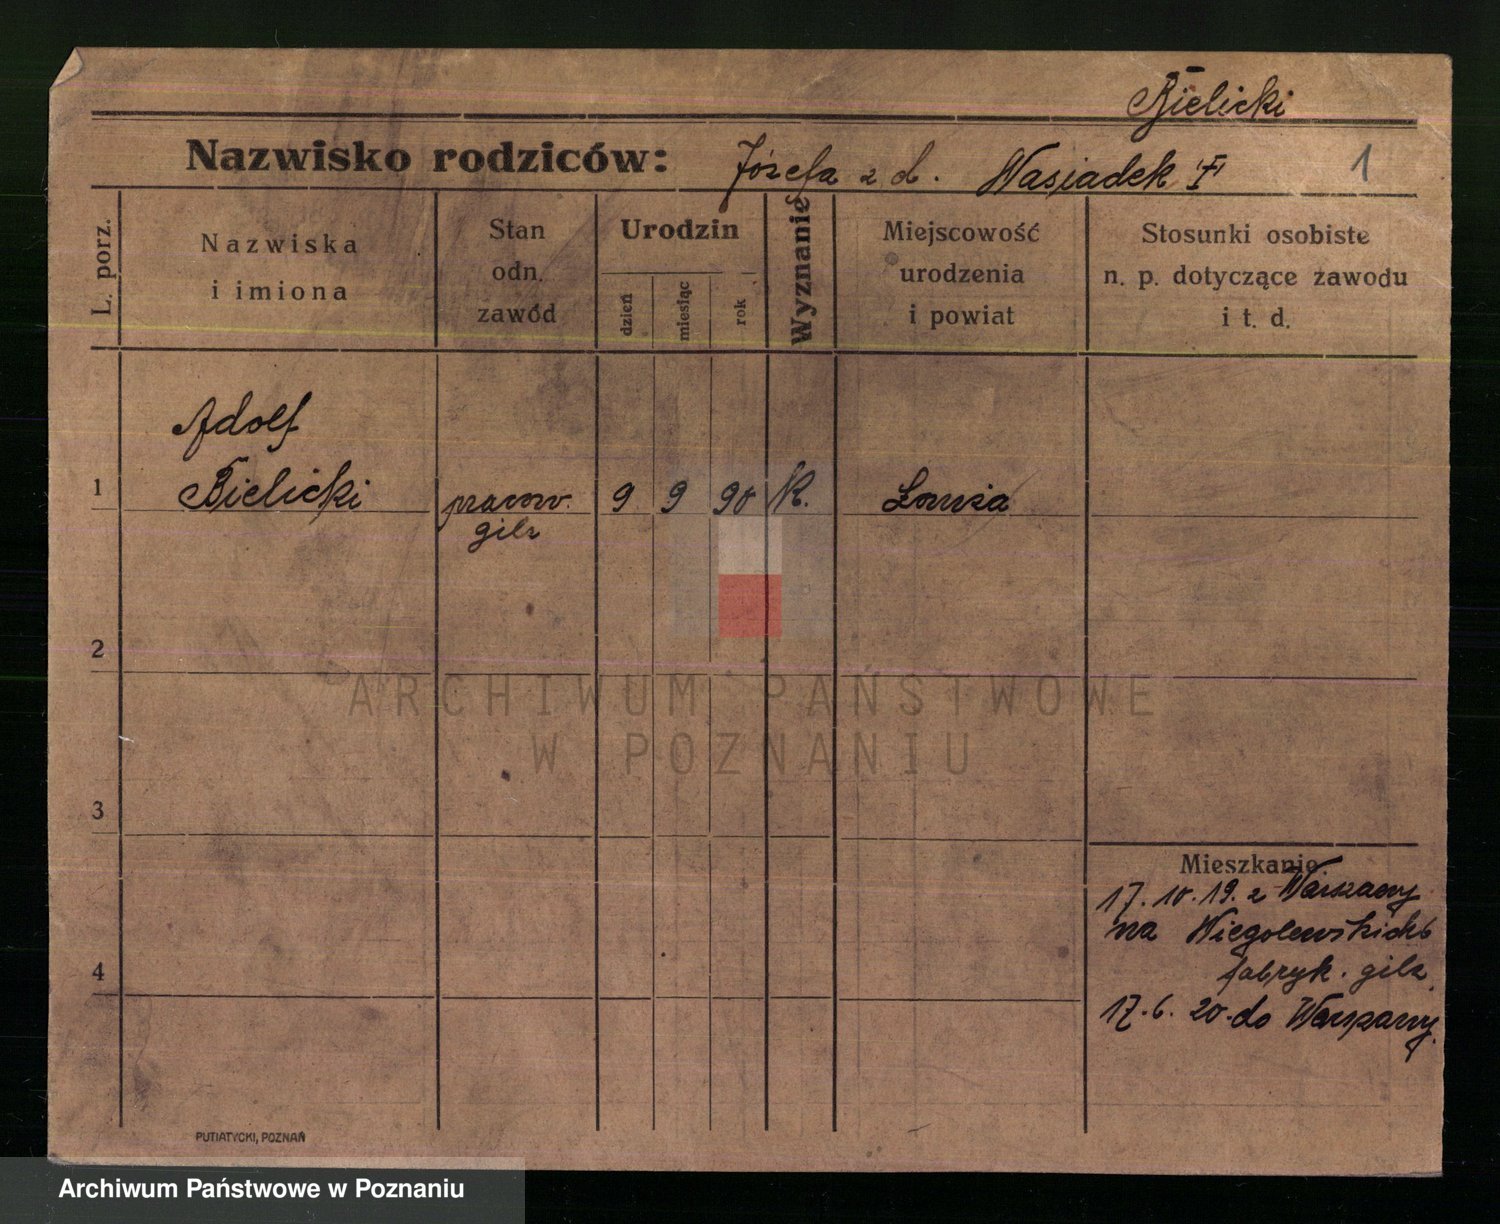 Bielicki
Nazwisko rodziców: Józefa z d. Wasiadek
1
L. porz.
Nazwiska
i imiona
Stan
odn.
zawód
Urodzin
dzień
miesiąc
rok
Wyznanie
Miejscowość
urodzenia
i powiat
Stosunki osobiste
n. p. dotyczące zawodu
i t. d.
Adolf
1 Bielicki pracow. 9 9 90 K. Łomża
gilz
2
ARCHIWUM PAŃSTWOWE
W POZNANIU
3
Mieszkanie
17.10.19. z Warszawy
na Niegolewskich 6
fabryk. gilz.
4
17.6.20. do Warszawy.
PUTIATYCKI, POZNAŃ
Archiwum Państwowe w Poznaniu